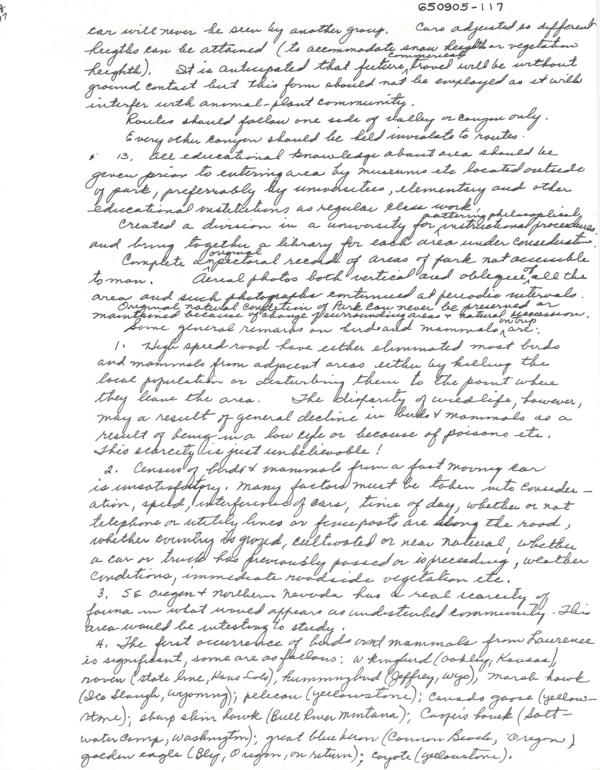 650905-117
car will never be seen by another group. Cars adjusted so different
heigths can be attained (to accommodate snow heighth or vegetation
heighth). It is anticipated that future commercial travel will be without
ground contact but this form should not be employed as it will
interfer with anomal-plant community.
Routes should follow one side of valley or canyon only.
Every other canyon should be held inviolate to routes.
13. All educational knowledge about area should be
given prior to entering area by museums etc located outside
of park, preferrably by universities, elementary and other
educational institutions as regular class work.
Created a division in a university for pattering philosophically instructional procedures
and bring together a library for each area under consideration.
Complete original pictoral record of areas of park not accessible
to man. Aereal photos both vertical and oblique of all the
area and such photographs continued at periodic intervals.
Original natural condition of Park can never be preserved or
maintained because of change of surrounding areas & natural succession.
Some general remarks on birds and mammals on trip are:
1. High speed road have either eliminated most birds
and mammals from adjacent areas either by killing the
local population or disturbing them to the point where
they leave the area. The disparity of wildlife, however,
may a result of general decline in birds & mammals as a
result of being in a low cycle or because of poisons etc.
This scarcity is just unbelievable!
2. Census of birds & mammals from a fast moving car
is unsatisfactory. Many factors must be taken into consider-
ation, speed, interference of cars, time of day, whether or not
telephone or utility lines or fenceposts are along the road,
whether country is grazed, cultivated or near natural, whether
a car or truck has previously passed or is preceeding, weather
conditions, immediate roadside vegetation etc.
3. SE Oregon & northern Nevada has a real scarcity of
fauna in what would appears as undisturbed community. This
area would be intesting to study.
4. The first occurrence of birds and mammals from Lawrence
is significant, some are as follows: W kingbird (Oakley, Kansas),
raven (state line, Kans Colo), hummingbird (Jeffrey, Wyo), marsh hawk
(Ice Slough, Wyoming); pelican (Yellowstone); Canada goose (Yellow-
stone); sharp shin hawk (Bull River Montana); Cooper's hawk (Salt-
water Camp, Washington); great blue heron (Cannon Beach, Oregon)
golden eagle (Bly, Oregon, on return); coyote (Yellowstone).